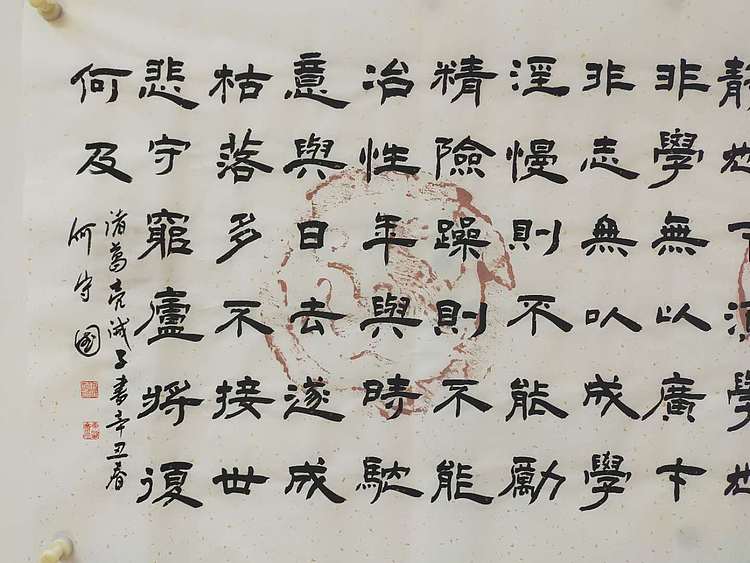 靜
非學無以廣才
非志無以成學
淫慢則不能勵
精險躁則不能
冶性年與時馳
意與日去遂成
枯落多不接世
悲守窮廬將復
何及
諸葛亮誡子書辛丑春
何守國